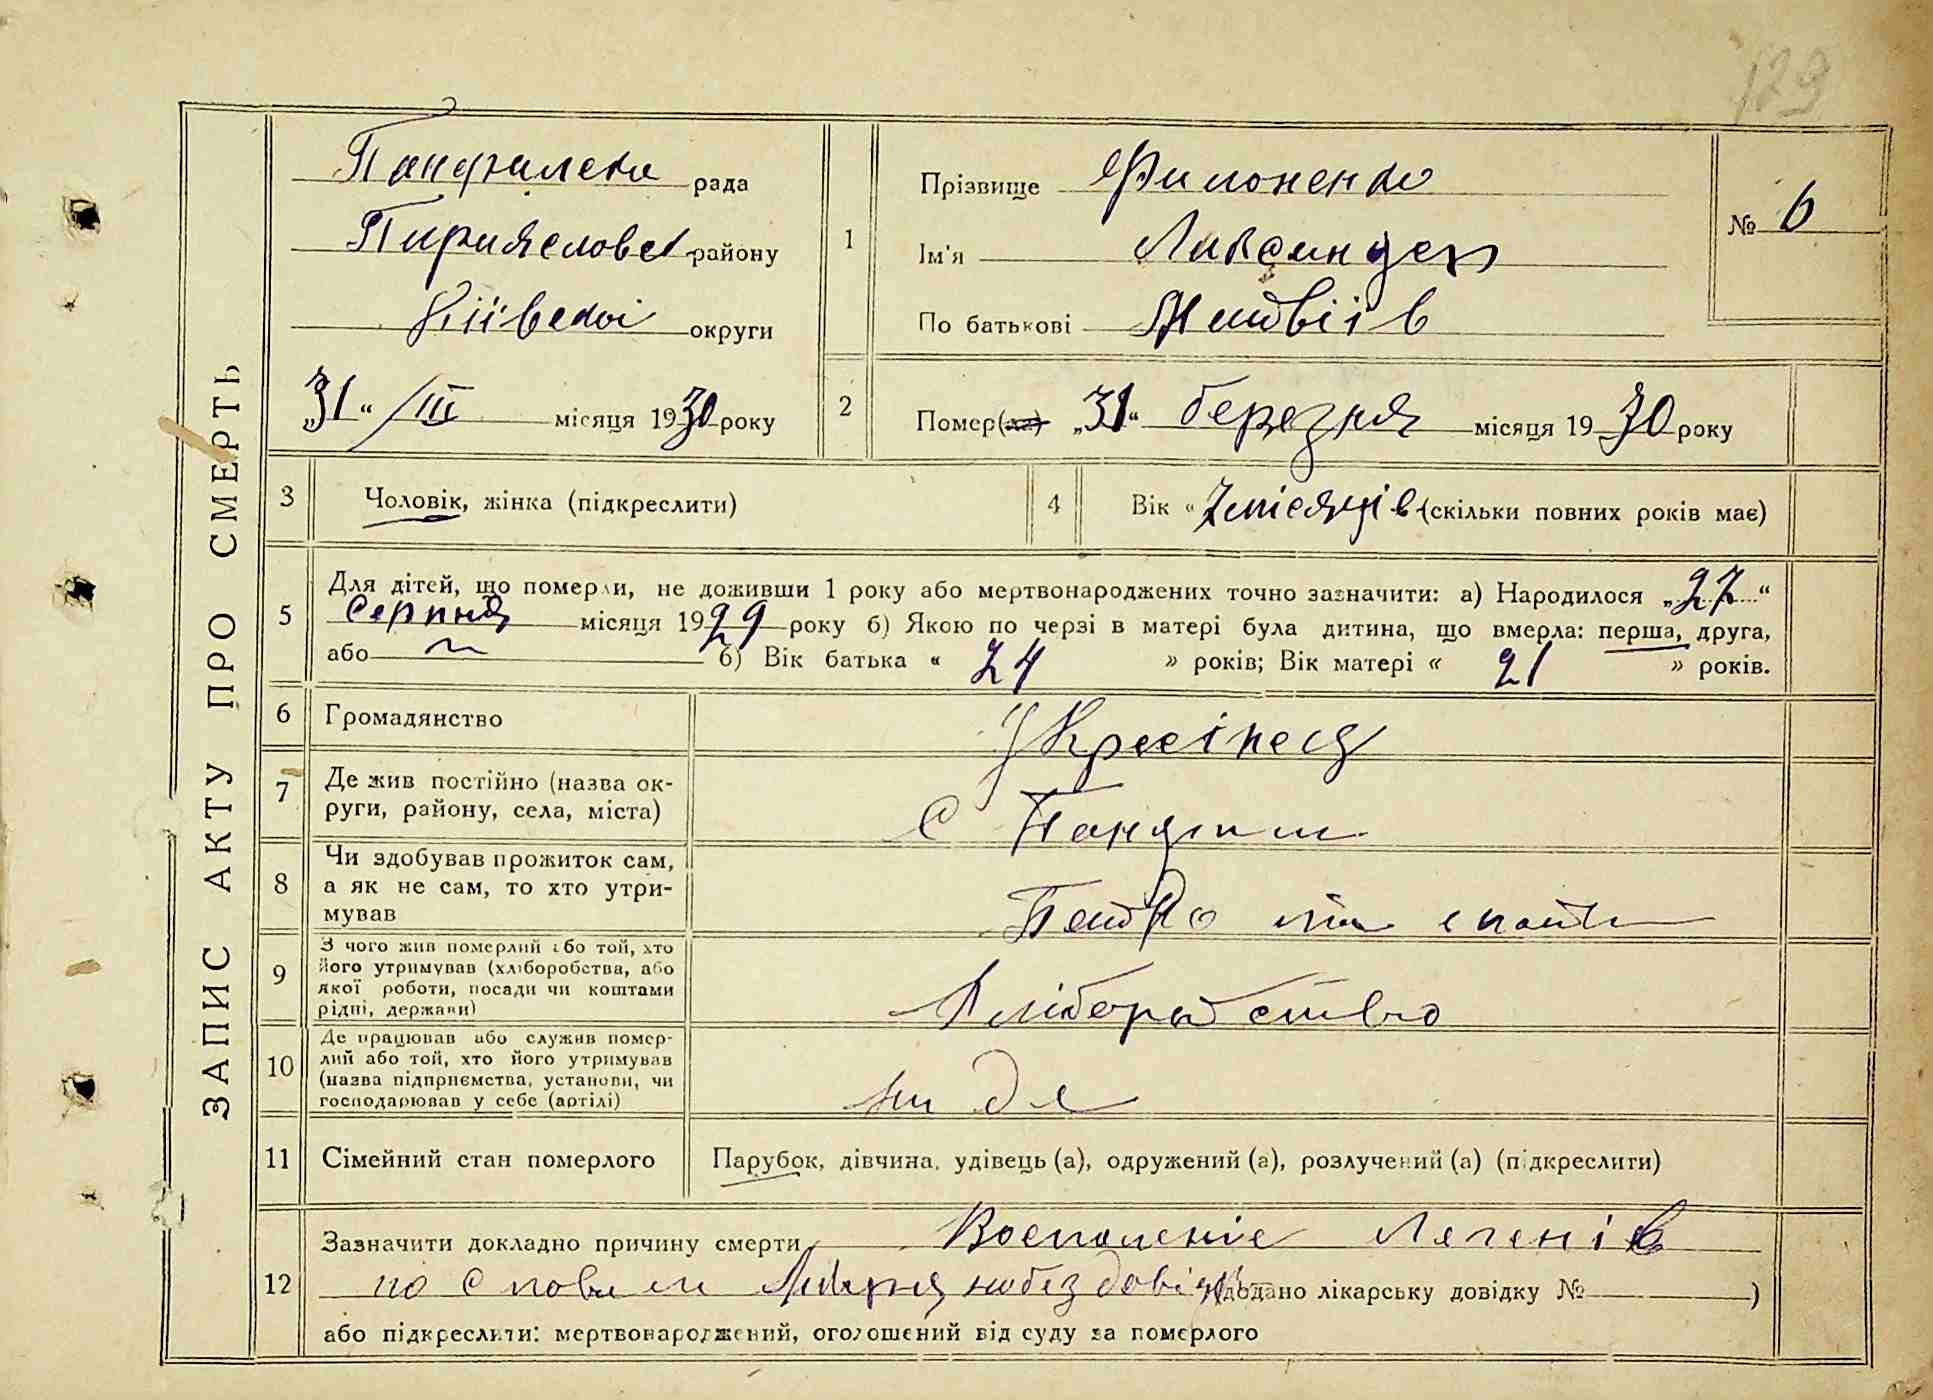 129
Панфилска рада
Пириясловск району
Київскої округи
„31“ /III місяця 1930 року
1
Прізвище Филоненко
Ім'я Лаксандер
По батькові Матвіів
№ 6
2
Помер(ла) „31“ березня місяця 1930 року
3
Чоловік, жінка (підкреслити)
4
Вік « 7 місяців (скільки повних років має)
5
Для дітей, що померли, не доживши 1 року або мертвонароджених точно зазначити: а) Народилося „27“
Серпня місяця 1929 року б) Якою по черзі в матері була дитина, що вмерла: перша, друга,
або б) Вік батька « 24 » років; Вік матері « 21 » років.
6
Громадянство
7
Де жив постійно (назва ок-
руги, району, села, міста)
С Панфили
8
Чи здобував прожиток сам,
а як не сам, то хто утри-
мував
9
З чого жив померлий або той, хто
його утримував (хліборобства, або
якої роботи, посади чи коштами
рідні, держави)
Хлiборобство
10
Де працював або служив помер-
лий або той, хто його утримував
(назва підприємства, установи, чи
господарював у себе (артілі)
ни де
11
Сімейний стан померлого
Парубок, дівчина, удівець (а), одружений (а), розлучений (а) (підкреслити)
12
Зазначити докладно причину смерти Воспаленіе Легенів
по Словам без довід (додано лікарську довідку № )
або підкреслити: мертвонароджений, оголошений від суду за померлого
ЗАПИС АКТУ ПРО СМЕРТЬ